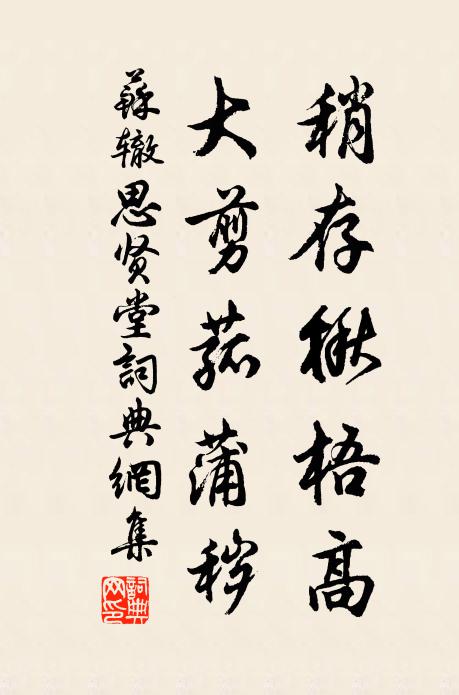 稍存楸梧高
大剪菰蒲秽
蘇辙思贤堂詞典網集
詞典
网印